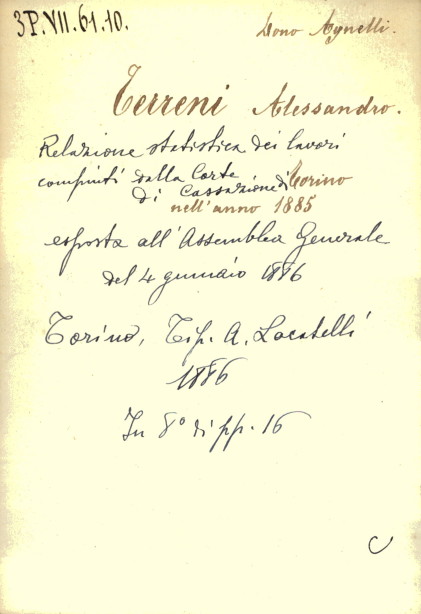 3P.VII.61.10.
Dono Agnelli.
Terreni Alessandro.
Relazione statistica dei lavori
compiuti dalla Corte
di Cassazione di Torino
nell'anno 1885
esposta all'Assemblea Generale
del 4 gennaio 1886
Torino, Tip. A. Locatelli
1886
In 8° di pp. 16
C